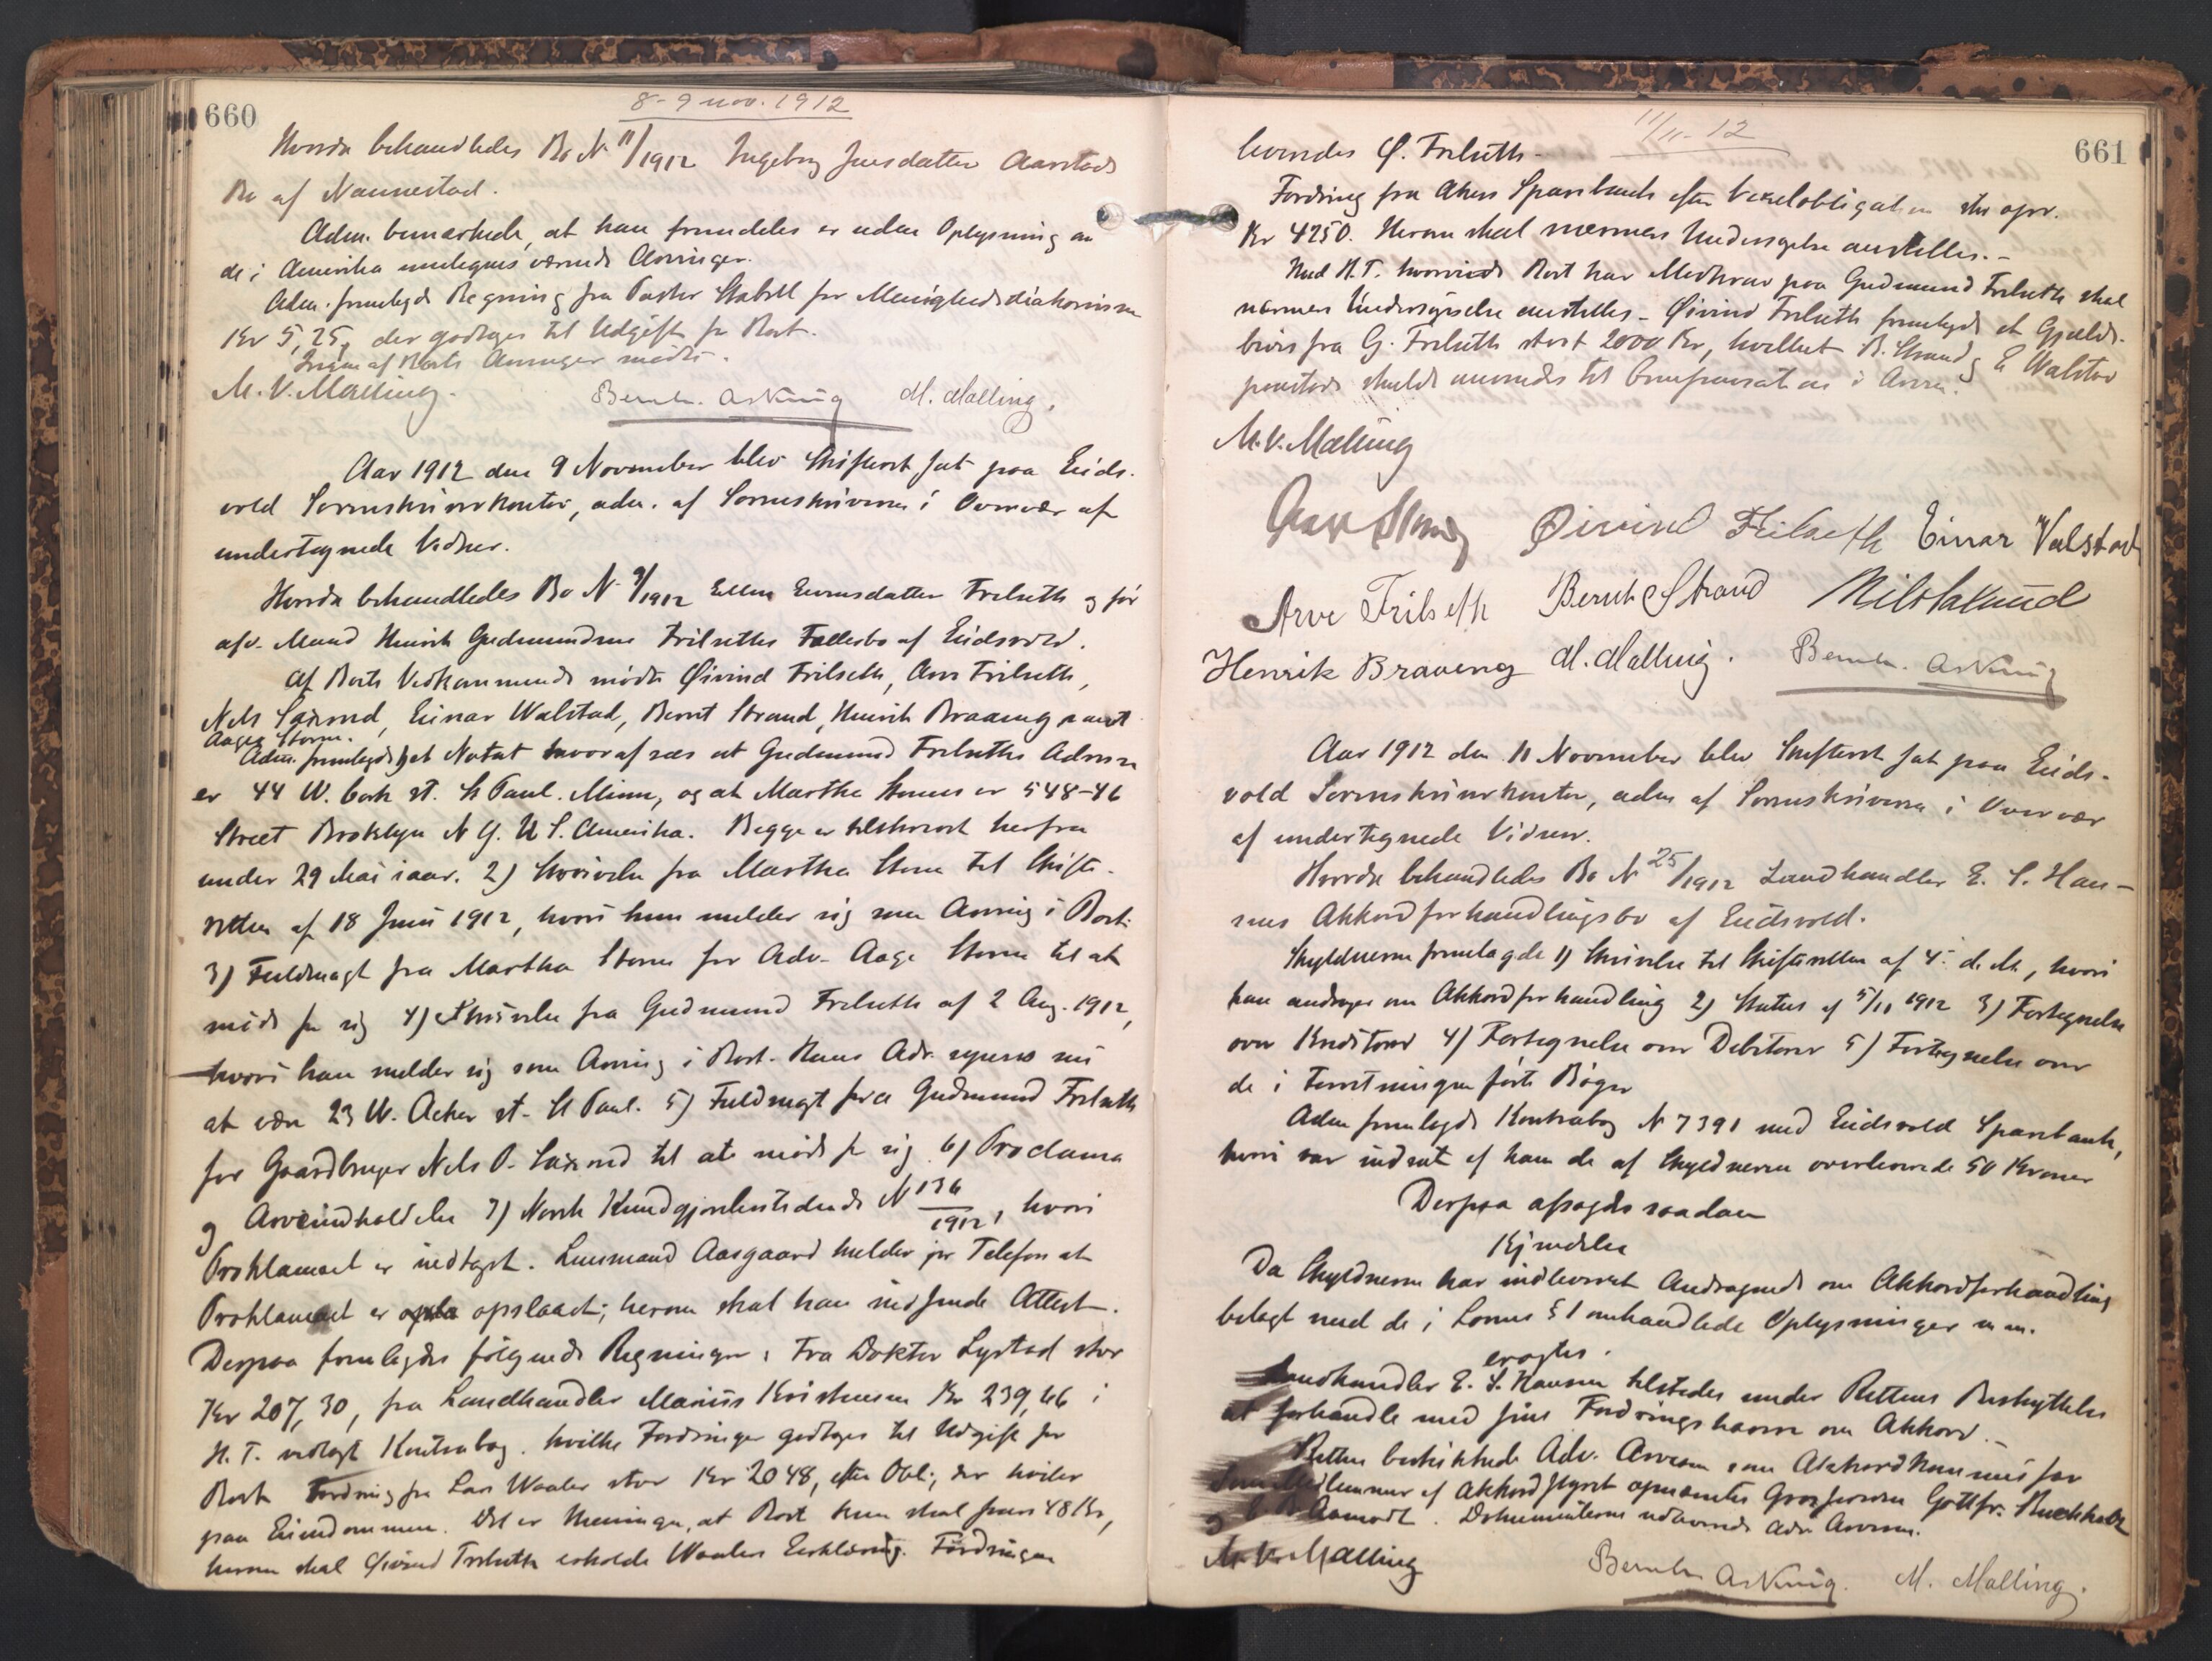 660
8-9 nov. 1912
Herda behandledes Bo N 11/1912 Ingeborg Jensdatter Aarstads
Bo af Nannestad.
Adm. bemærkede, at han fremdeles er uden Oplysning om
de i Amerika værende Arvinger.
Adm. fremlagde Regning fra Pastor Stabell for Menighedsdiakonissen
Kr 5,25, der godtages til Udgift for Boet.
Ingen af Boets Arvinger mødte.
M. V. Malling. Bernh. Asknig M. Malling.
Aar 1912 den 9 November blev Skifteret sat paa Eids-
vold Sorenskriverkontor, adm. af Sorenskriveren i Overvær af
undertegnede Vidner.
Herda behandledes Bo N 9/1912 Ellen Evensdatter Frilseth og før
afd. Mand Henrik Gudmundsen Frilseths Fællesbo af Eidsvold.
Af Boets Vedkommende mødte Øivind Frilseth, Arve Frilseth,
Nels Saxrud, Einar Walstad, Bernt Strand, Henrik Braaeng samt
Aage Storm.
Adm. fremlagde 1) et Notat hvoraf sees at Gudmund Frilseths Adresse
er 44 W. Cook st. St Paul. Minn, og at Marthe Storms er 548-46
Street Brooklyn N Y. U S. Amerika. Begge er tilskrevet herfra
under 29 Mai iaar. 2) Skrivelse fra Martha Storm til Skifte-
retten af 18 Juni 1912, hvori hun melder sig som Arving i Boet.
3) Fuldmagt fra Martha Storm for Adv. Aage Storm til at
møde for sig 4) Skrivelse fra Gudmund Frilseth af 2 Aug. 1912,
hvori han melder sig som Arving i Boet. Hans Adr. opgives nu
at være 23 W. Acker st. St Paul. 5) Fuldmagt fra Gudmund Frilseth
for Gaardbruger Nels O. Saxrud til at møde for sig 6) Proclama
og Arveindkaldelse 7) Norsk Kundgjørelsestidende N 136/1912, hvori
Proklamaet er indtaget. Lensmand Aasgaard melder pr Telefon at
Proklamaet er opslaaet; herom skal han indsende Attest.
Derpaa fremlagdes følgende Regninger: Fra Doktor Lystad stor
Kr 207,30, fra Landhandler Marius Kristensen Kr 239,66 i
H. T. vedlagt Kontrabog. hvilke Fordringer godtages til Udgift for
Boet. Fordring fra Lars Waaler stor Kr 2048, efter Obl.; der hviler
paa Eiendommen. Det er Meningen, at Boet kun skal svare 48 Kr,
herom skal Øivind Frilseth erholde Waalers Erklæring. Fordringen
11/11-12
661
Ø. Frilseth.
Fordring fra Akers Sparebank efter Vexelobligation stor opr.
Kr 4250. Herom skal nærmere Undersøgelse anstilles.-
Med H.T. hvorvidt Boet har Medkrav paa Gudmund Frilseth skal
nærmere Undersøgelse anstilles - Øivind Frilseth fremlagde et Gjælds-
brev fra G. Frilseth stort 2000 Kr, hvilket B. Strand og E Walstad
paastod skulde anvendes til Compensation i Arven.
M. V. Malling
Aage Storm Øivind Frilseth Einar Valstad
Arve Frilseth Bernt Strand Nils Saxrud
Henrik Braaeng M. Malling. Bernh. Asknig
Aar 1912 den 11 November blev Skifteret sat paa Eids-
vold Sorenskriverkontor, adm. af Sorenskriveren i Overvær
af undertegnede Vidner.
Herda behandledes Bo N 25/1912 Landhandler E. S. Han-
sens Akkordforhandlingsbo af Eidsvold.
Skyldneren fremlagde 1) Skrivelse til Skifteretten af 4. d. M., hvori
han andrager om Akkordforhandling 2) Status af 5/11 1912 3) Fortegnelse
over Kreditorer 4) Fortegnelse over Debitorer 5) Fortegnelse over
de i Forretningen førte Bøger
Adm fremlagde Kontrabog N 7391 med Eidsvold Sparebank,
hvori var indsat af ham de af Skyldneren overleverede 50 Kroner
Derpaa afsagdes saadan
Kjendelse
Da Skyldneren har indleveret Andragende om Akkordforhandling
belagt med de i Lovens § 1 omhandlede Oplysninger m m.
eragtes.
Landhandler E. S. Hansen tilstedes under Rettens Beskyttelse
at forhandle med sine Fordringshavere om Akkord.-
Retten beskikkede Adv. Arvesen som Akkordkommissær
Som Medlemmer af Akkordstyret opnævntes Grosserere Gottfr. Buchholz
og Aamodt. Dokumenterne udleveredes Adv Arvesen.
M. V. Malling Bernh Asknig. M. Malling.